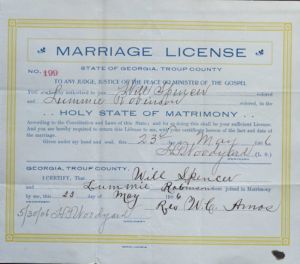 MARRIAGE LICENSE
STATE OF GEORGIA, TROUP COUNTY
NO. 199
TO ANY JUDGE, JUSTICE OF THE PEACE OR MINISTER OF THE GOSPEL
You are authorized to join Will Spencer colored
and Lummie Robinson colored, in the
HOLY STATE OF MATRIMONY
According to the Constitution and Laws of this State; and for so doing this shall be your sufficient License. And
you are hereby required to return this License to me, with your certificate hereon of the fact and date of the
marriage.
Given under my hand and seal, this 23 May 6
H T Woodyard (L. S.)
GEORGIA, TROUP COUNTY.
I CERTIFY, That Will Spencer
and Lummie Robinson were joined in Matrimony
by me, this 23 day of May 6
5/30/06 H T Woodyard Rev W. C. Amos